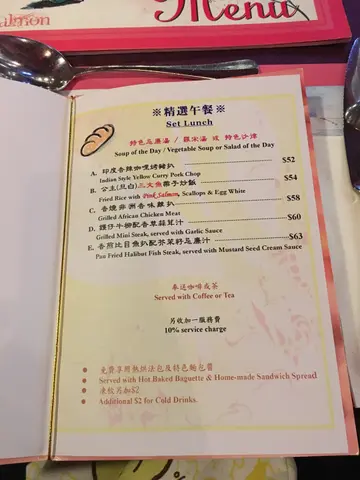 almon
Menu
※精選午餐※
Set Lunch
特色忌廉湯 / 羅宋湯 或 特色沙律
Soup of the Day / Vegetable Soup or Salad of the Day
A. 印度香辣咖喱烤豬扒 $52
Indian Style Yellow Curry Pork Chop
B. 公主(旦白)三文魚帶子炒飯 $54
Fried Rice with Pink Salmon, Scallops & Egg White
C. 香燒非洲香味雞扒 $58
Grilled African Chicken Meat
D. 鐵仔牛柳配香草蒜茸汁 $60
Grilled Mini Steak, served with Garlic Sauce
E. 香煎比目魚扒配芥菜籽忌廉汁 $63
Pan Fried Halibut Fish Steak, served with Mustard Seed Cream Sauce
奉送咖啡或茶
Served with Coffee or Tea
另收加一服務費
10% service charge
免費享用熱烘法包及特色麵包醬
Served with Hot Baked Baguette & Home-made Sandwich Spread
凍飲另加$2
Additional $2 for Cold Drinks.